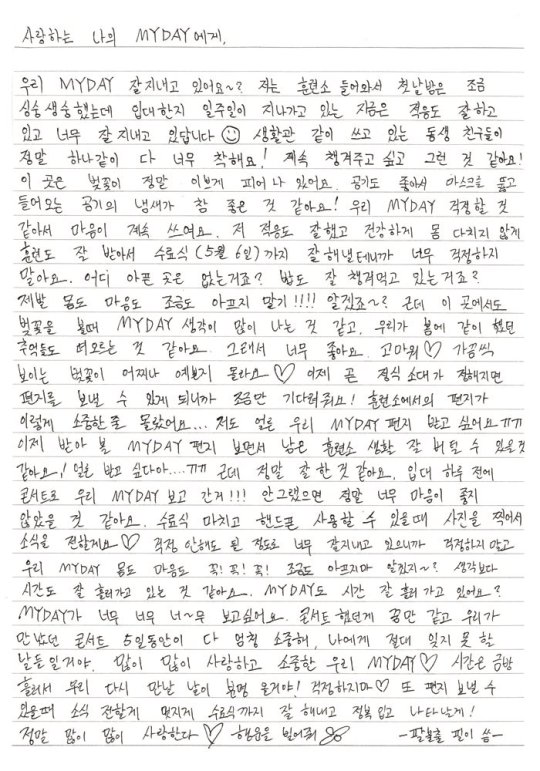 사랑하는 나의 MYDAY에게,
우리 MYDAY 잘지내고 있어요~? 저는 훈련소 들어와서 첫날밤은 조금
싱숭생숭했는데 입대한지 일주일이 지나가고 있는 지금은 적응도 잘 하고
있고 너무 잘 지내고 있답니다 ☺ 생활관 같이 쓰고 있는 동생 친구들이
정말 하나같이 다 너무 착해요! 계속 챙겨주고 싶고 그런 것 같아요!
이 곳은 벚꽃이 정말 이쁘게 피어나 있어요. 공기도 좋아서 마스크를 뚫고
들어오는 공기의 냄새가 참 좋은 것 같아요! 우리 MYDAY 걱정할 것
같아서 마음이 계속 쓰여요. 저 적응도 잘했고 건강하게 몸 다치지 않게
훈련도 잘 받아서 수료식 (5월 6일)까지 잘해낼테니까 너무 걱정하지
말아요. 어디 아픈 곳은 없는거죠? 밥도 잘 챙겨먹고 있는거죠?
제발 몸도 마음도 조금도 아프지 말기!!!! 알겠죠~? 근데 이 곳에서도
벚꽃을 볼때 MYDAY 생각이 많이 나는 것 같고, 우리가 봄에 같이 했던
추억들도 떠오르는 것 같아요. 그래서 너무 좋아요. 고마워♡ 가끔씩
보이는 벚꽃이 어찌나 예쁘지 몰라요♡ 이제 곧 정식 소대가 정해지면
편지를 보낼 수 있게 되니까 조금만 기다려줘요! 훈련소에서의 편지가
이렇게 소중한줄 몰랐어요... 저도 얼른 우리 MYDAY 편지 받고 싶어요ㅠㅠ
이제 받아 볼 MYDAY 편지 보면서 남은 훈련소 생활 잘 버틸 수 있을것
같아요! 얼른 받고 싶다아....ㅠㅠ 근데 정말 잘 한 것 같아요. 입대 하루 전에
콘서트로 우리 MYDAY 보고 간거!!! 안그랬으면 정말 너무 마음이 좋지
않았을 것 같아요. 수료식 마치고 핸드폰 사용할 수 있을때 사진을 찍어서
소식을 전할게요♡ 걱정 안해도 될 정도로 너무 잘지내고 있으니까 걱정하지 말고
우리 MYDAY 몸도 마음도 꼭! 꼭! 꼭! 조금도 아프지마 알겠지~? 생각보다
시간도 잘 흘러가고 있는 것 같아요. MYDAY도 시간 잘 흘러 가고 있어요?
MYDAY가 너무 너무 너~무 보고싶어요. 콘서트 했던게 꿈만 같고 우리가
만났던 콘서트 5일동안이 다 엄청 소중해, 나에게 절대 잊지 못 할
날들일거야. 많이 많이 사랑하고 소중한 우리 MYDAY♡ 시간은 금방
흘러서 우리 다시 만날 날이 분명 올거야! 걱정하지마♡ 또 편지 보낼 수
있을때 소식 전할게 멋지게 수료식까지 잘 해내고 정복 입고 나타날게!
정말 많이 많이 사랑한다♡ 행운을 빌어줘 -팔불출 필이 씀-